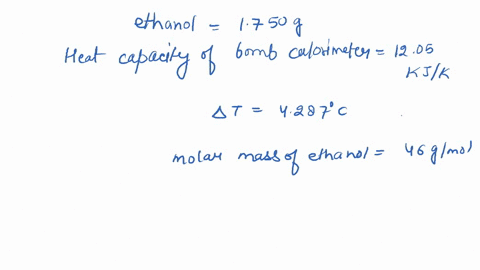 ethanol = 1.750 g
Heat capacity of bomb calorimeter = 12.05
KJ/K
ΔT = 4.287°C
molar mass of ethanol = 46 g/mol